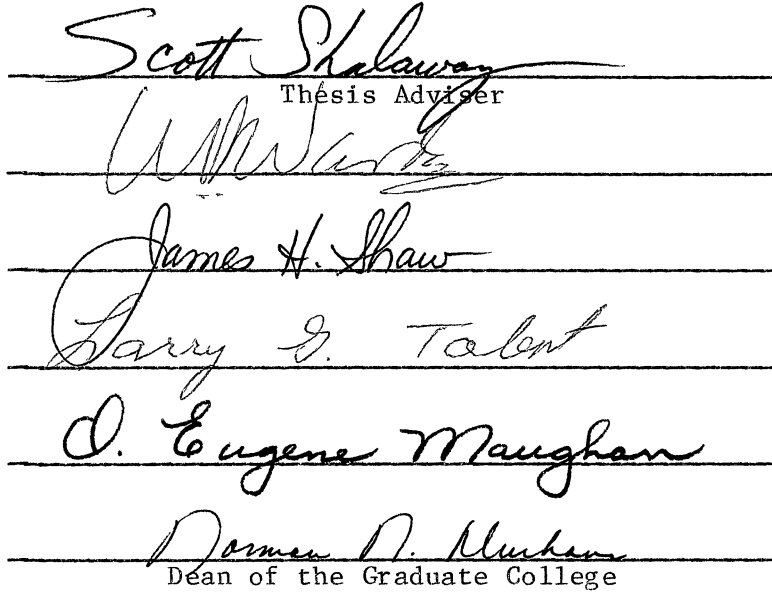 Scott Shalaway
Thesis Adviser
James H. Shaw
Larry G. Talent
O. Eugene Maughan
Norman N. Durham
Dean of the Graduate College